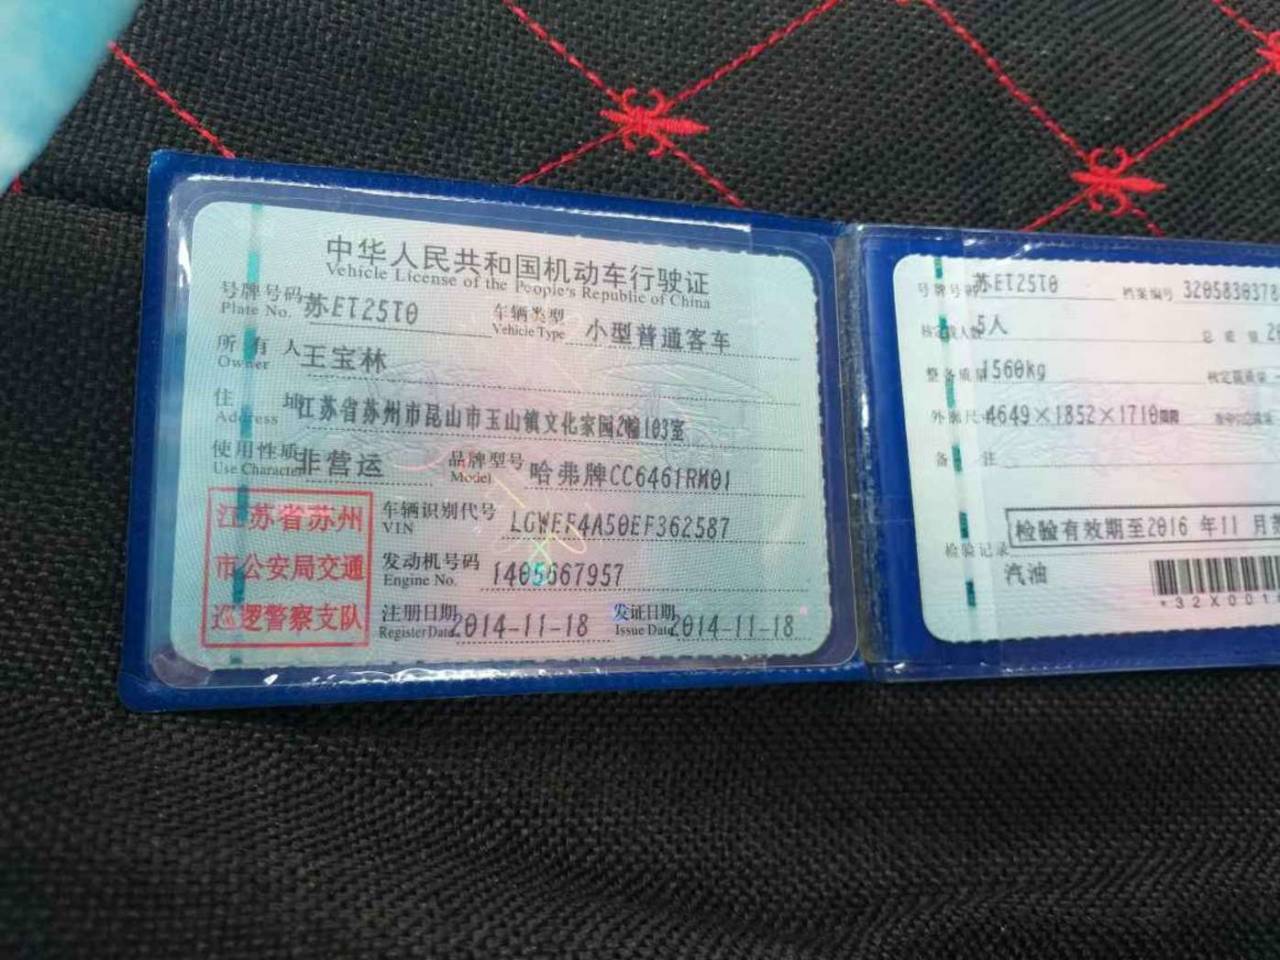 中华人民共和国机动车行驶证
Vehicle License of the People's Republic of China
号牌号码 苏ET25T0 车辆类型 小型普通客车
Plate No. Vehicle Type
所有人 王宝林
Owner
住址 江苏省苏州市昆山市玉山镇文化家园2幢103室
Address
使用性质 非营运 品牌型号 哈弗牌CC6461RM01
Use Character Model
江苏省苏州
市公安局交通
巡逻警察支队
车辆识别代号 LGWEF4A50EF362587
VIN
发动机号码 1405667957
Engine No.
注册日期 2014-11-18 发证日期 2014-11-18
Register Date Issue Date
号牌号码 苏ET25T0 档案编号 3205830378
核定载人数 5人 总质量
整备质量 1560kg 核定载质量
外廓尺寸 4649×1852×1710
备注
检验有效期至2016 年11 月
检验记录
汽油
*32X001